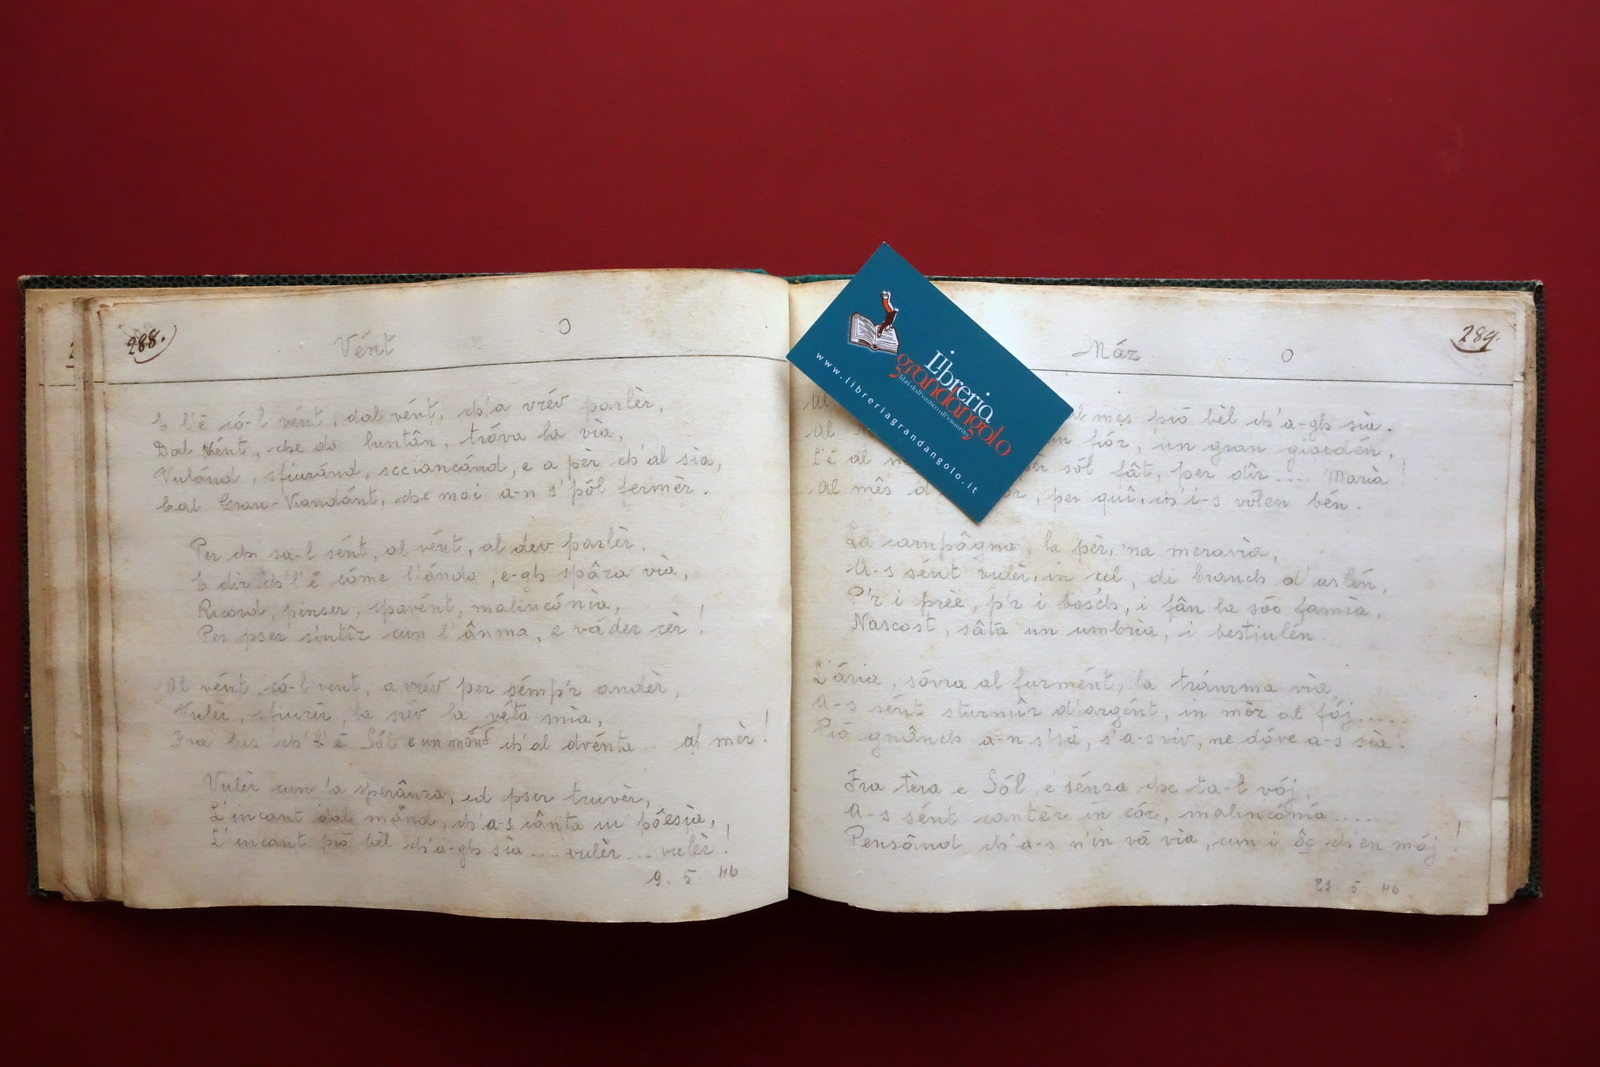 288.
Vént
E l'é có-l vént, dal vént, ch'a vrév parlèr,
Dal Vént, che da luntân, tróva la via,
Vulánd, sfiuránd, scciancánd, e a pèr ch'al sia,
Cal Gran-Viandánt, che mai a-n s'pól fermèr.
Per chi sa-l sént, al vént, al dév parlèr,
E dir ch'l'é cóme l'ánda, e-gh spâza via,
Ricord, penser, spavént, malincónia,
Per pser sintîr cun l'ânma, e váder cèr!
Al vént, có-l vent, a vrév per sémp'r andèr,
Vulèr, sfiurèr, la srév la véta mia,
Fra lus ch'l'é Sól e un mónd ch'al dvénta... al mèr!
Vulèr cun la sperânza, ed pser truvèr,
L'incant dal mónd, ch'a-s cânta in pôesia,
L'incant pió bèl ch'a-gh sia .... vulèr ... vulèr!
9. 5. 46
Libreria
grandangolo
www.libreriagrandangolo.it
289.
Máz
al mes pió bèl ch'a-gh sia.
Al fiór, un gran giardén,
L'é al sól fât, per dîr .... Maria!
Al mês per quî, ch'i-s vólen bén.
La campâgna, la pèr, 'na meravia,
A-s sént vulèr, in cel, di branch d'uslén,
P'r i prèe, p'r i bosch, i fân la sóo famia,
Nascost, sâta un umbria, i bestiulén.
L'ária, sóvra al furmént, la trámma via,
A-s sént sturmîr d'argént, in mèz al fój.....
Pió gnânch a-n s'sa, s'a-s viv, ne dóve a-s sia.
Fra tèra e Sól, e sénza che ta-l vój,
A-s sént cantèr in cór, malincónia......
Pensând ch'a-s n'in vâ via, cun i óc ch'en mój!
23. 5. 46